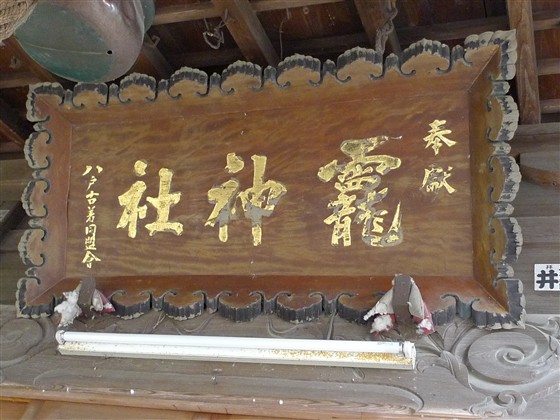 奉献
龗神社
八戸古着同盟會
井